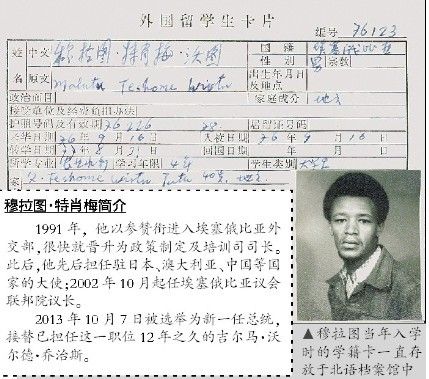 外国留学生卡片
编号 76123
姓 中文 穆拉图·特肖梅·沃图 国籍 埃塞俄比亚
性别 男 宗教
名 原文 Mulatu Teshome Wirtu 出生年月日及地点
政治面目 家庭成分 地主
接受单位及经费负担办法
护照号码及有效期 居留证号码
来华日期 76年9月16日 入校日期 76年9月16日
8月31日 回国日期 年 月 日
所学专业 学习年限 4年 学生类别 大学生
家 父 Teshome Wirtu 地主
穆拉图·特肖梅简介
1991年，他以参赞衔进入埃塞俄比亚外
交部，很快就晋升为政策制定及培训司司长。
此后，他先后担任驻日本、澳大利亚、中国等国
家的大使；2002年10月起任埃塞俄比亚议会
联邦院议长。
2013年10月7日被选举为新一任总统，
接替已担任这一职位12年之久的吉尔马·沃
尔德·乔治斯。
▲穆拉图当年入学
时的学籍卡一直存
放于北语档案馆中